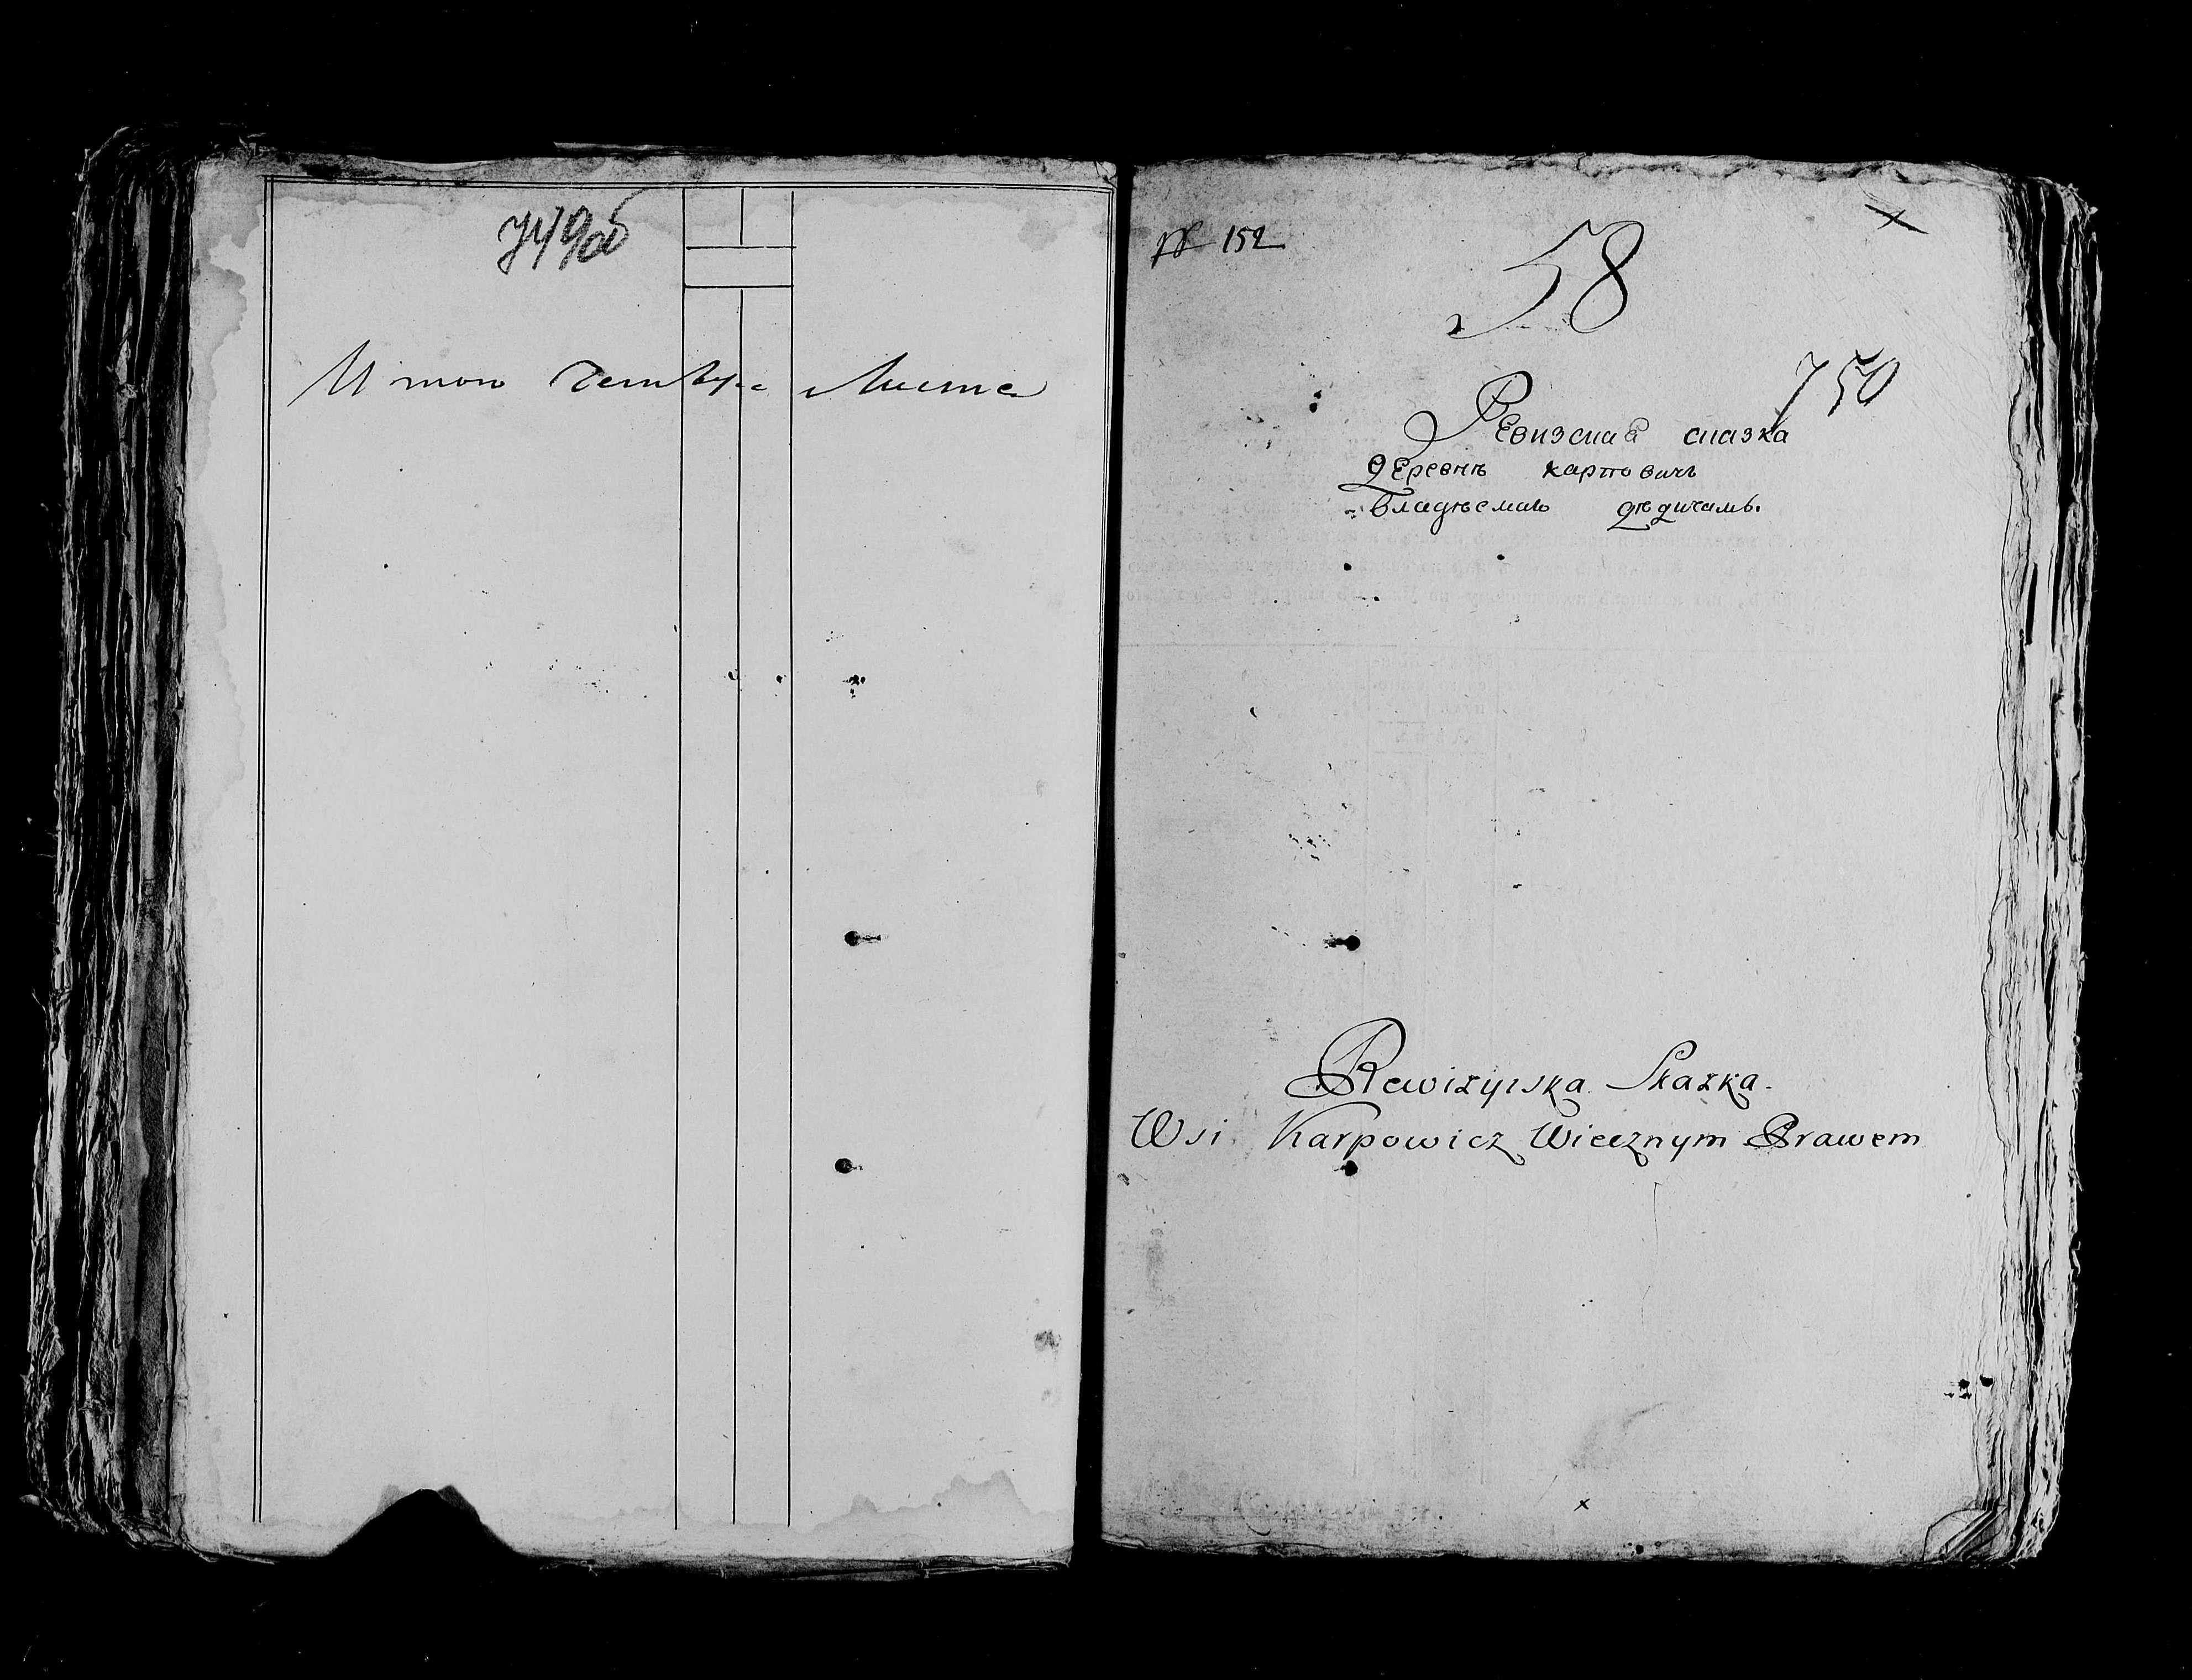 749об
Итого четыре листа
№ 152
58
750
Ревизская сказка
деревнѣ карповичъ
владѣемаю дѣдичамъ.
Rewizyiska Skazka.
Wsi Karpowicz Wiecznym Prawem